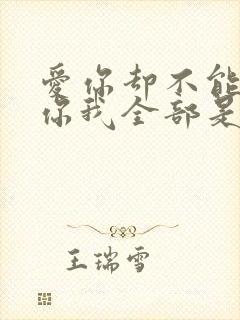 爱你却不能
你我全部是
王瑞雪